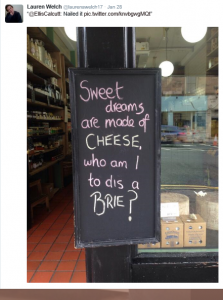 Lauren Welch @laurenswelch17 Jan 28
"@EllisCalcutt: Nailed it pic.twitter.com/knvbgwgMQt"
Sweet
dreams
are made of
CHEESE,
who am I
to dis a
BRIE?